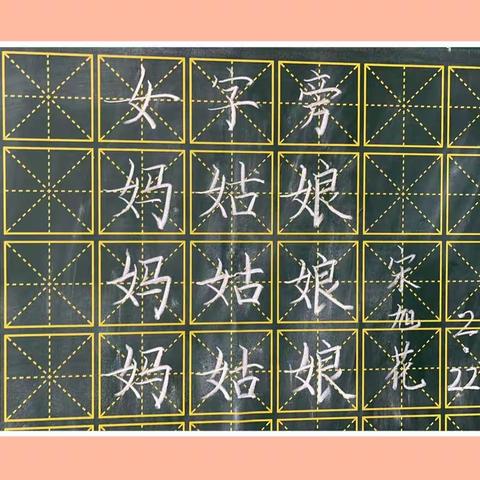 女字旁
妈姑娘
妈姑娘
妈姑娘
宋旭花
2.22